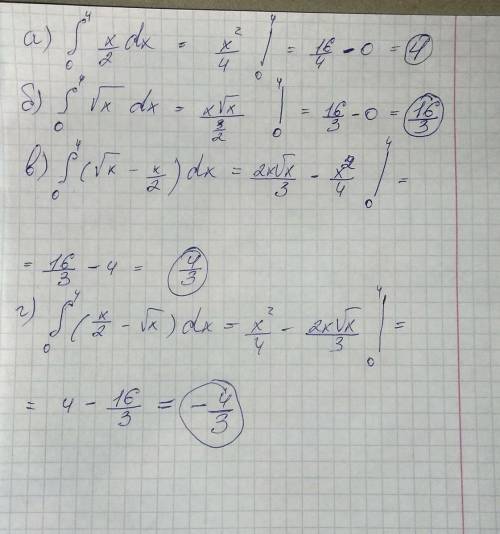 а) ∫₀⁴ x/2 dx = x²/4 |₀⁴ = 16/4 - 0 = 4
б) ∫₀⁴ √x dx = x√x/(3/2) |₀⁴ = 16/3 - 0 = 16/3
в) ∫₀⁴ (√x - x/2) dx = 2x√x/3 - x²/4 |₀⁴ =
= 16/3 - 4 = 4/3
г) ∫₀⁴ (x/2 - √x) dx = x²/4 - 2x√x/3 |₀⁴ =
= 4 - 16/3 = -4/3